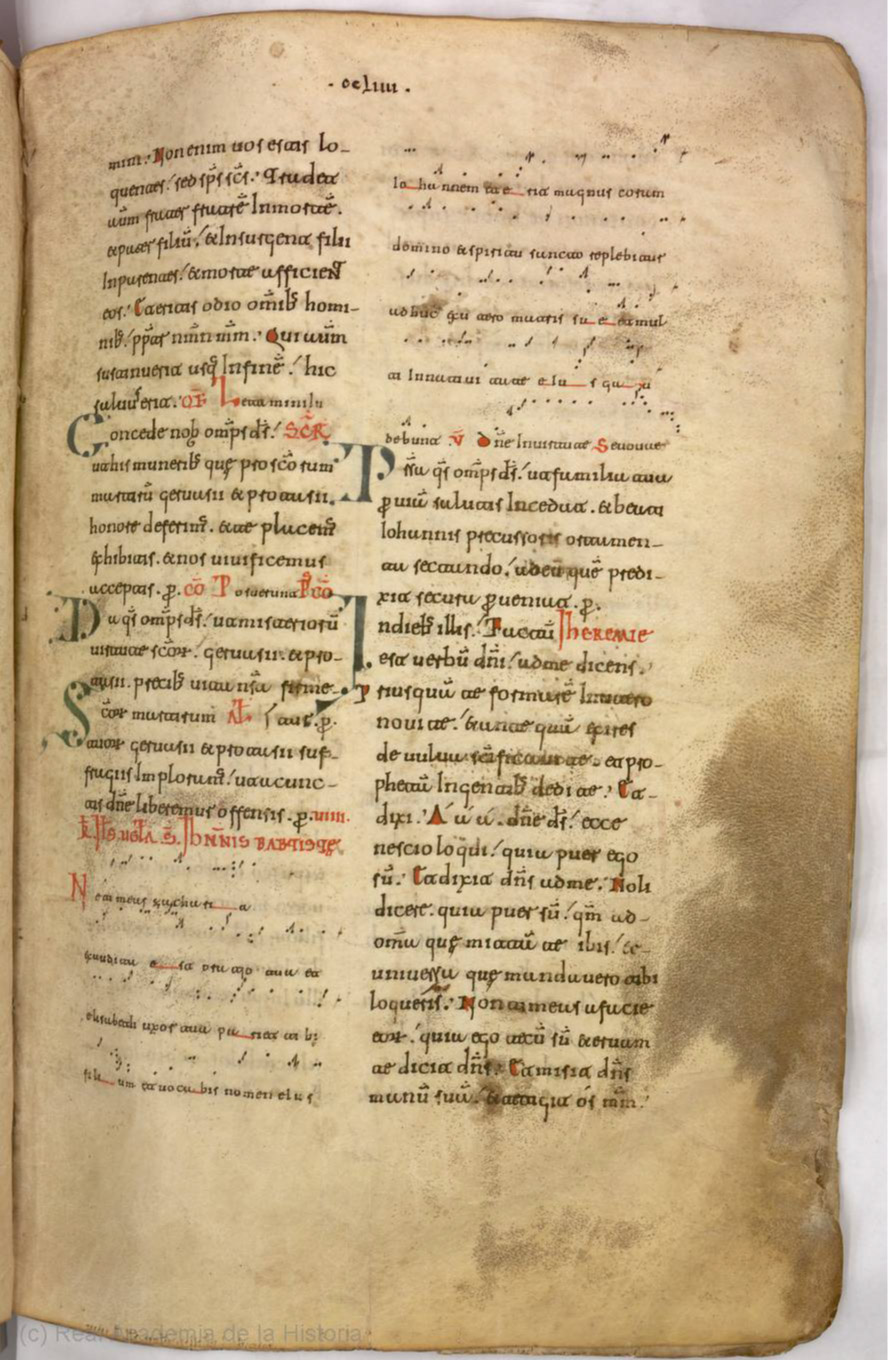 · ccliiii ·
mini. Non enim uos estis lo-
quentes. sed sp̄s sc̄s. Tradet
aūm frater fratrē In mortē.
et pater filiū. et Insurgent filii
In parentes. et morte afficient
eos. Et eritis odio om̄ib; homi-
nib; pp̄ter nom̄n m̄m. Qui aūm
sustinuerit usq; In finē. hic
saluus erit. OF Letamini In
Concede nob om̄ps d̄s. SCR
ut his munerib; quę pro sc̄orum
martirū geruasii et protasii.
honore deferim̄. et te placem̄
exhibitis. et nos uiuificemur
acceptis. p̄. cō Posuerunt P̄cō
Da q̄s om̄ps d̄s. ut misteriorū
uirtute sc̄or. geruasii. et pro-
tasii. precib; uita nr̄a firme-
Sc̄or martirum AL̄ tur. p̄.
tuor geruasii et protasii suf-
fragiis Imploram̄. ut a cunc-
tis dn̄e liberemur offensis. p̄. uiiii.
k̄ Ił̄s ugł̄a s̄ Ioħnnis baptistę
Ne timeas zacharia
exaudita est oratio tua et
elisabeth uxor tua pariet tibi
filium et uocabis nomen eius
Iohannem et erit magnus coram
domino et spiritu sancto replebitur
adhuc ex utero matris sue et mul
ti In natiuitate eius gau
debunt V̄ Dn̄e In uirtute Seuouae
Pr̄sta q̄s om̄ps d̄s. ut familia tua
p̄ uiā salutis Incedat. et beati
Iohannis precussoris ortamen-
ta sectando. ad eū quē predi-
xit secura p̄ueniat. p̄.
In dieb; illis. Factū Iheremie
est uerbū dn̄i. ad me dicens.
Priusquā te formarē In utero
noui te. et antequā exires
de uulua sc̄ificaui te. et pro-
phetā In gentib; dedi te. Et
dixi. A a a. dn̄e d̄s. ecce
nescio loqui. quia puer ego
sū. Et dixit dn̄s ad me. Noli
dicere. quia puer sū. qm̄ ad
omīa quę mittā te ibis. et
uniuersa quę mandauero tibi
loqueris. Non timeas a facie
eor. quia ego tecū sū et eruam
te dicit dn̄s. Et misit dn̄s
manū suā. et tetigit os m̄m.
(c) Real Academia de la Historia